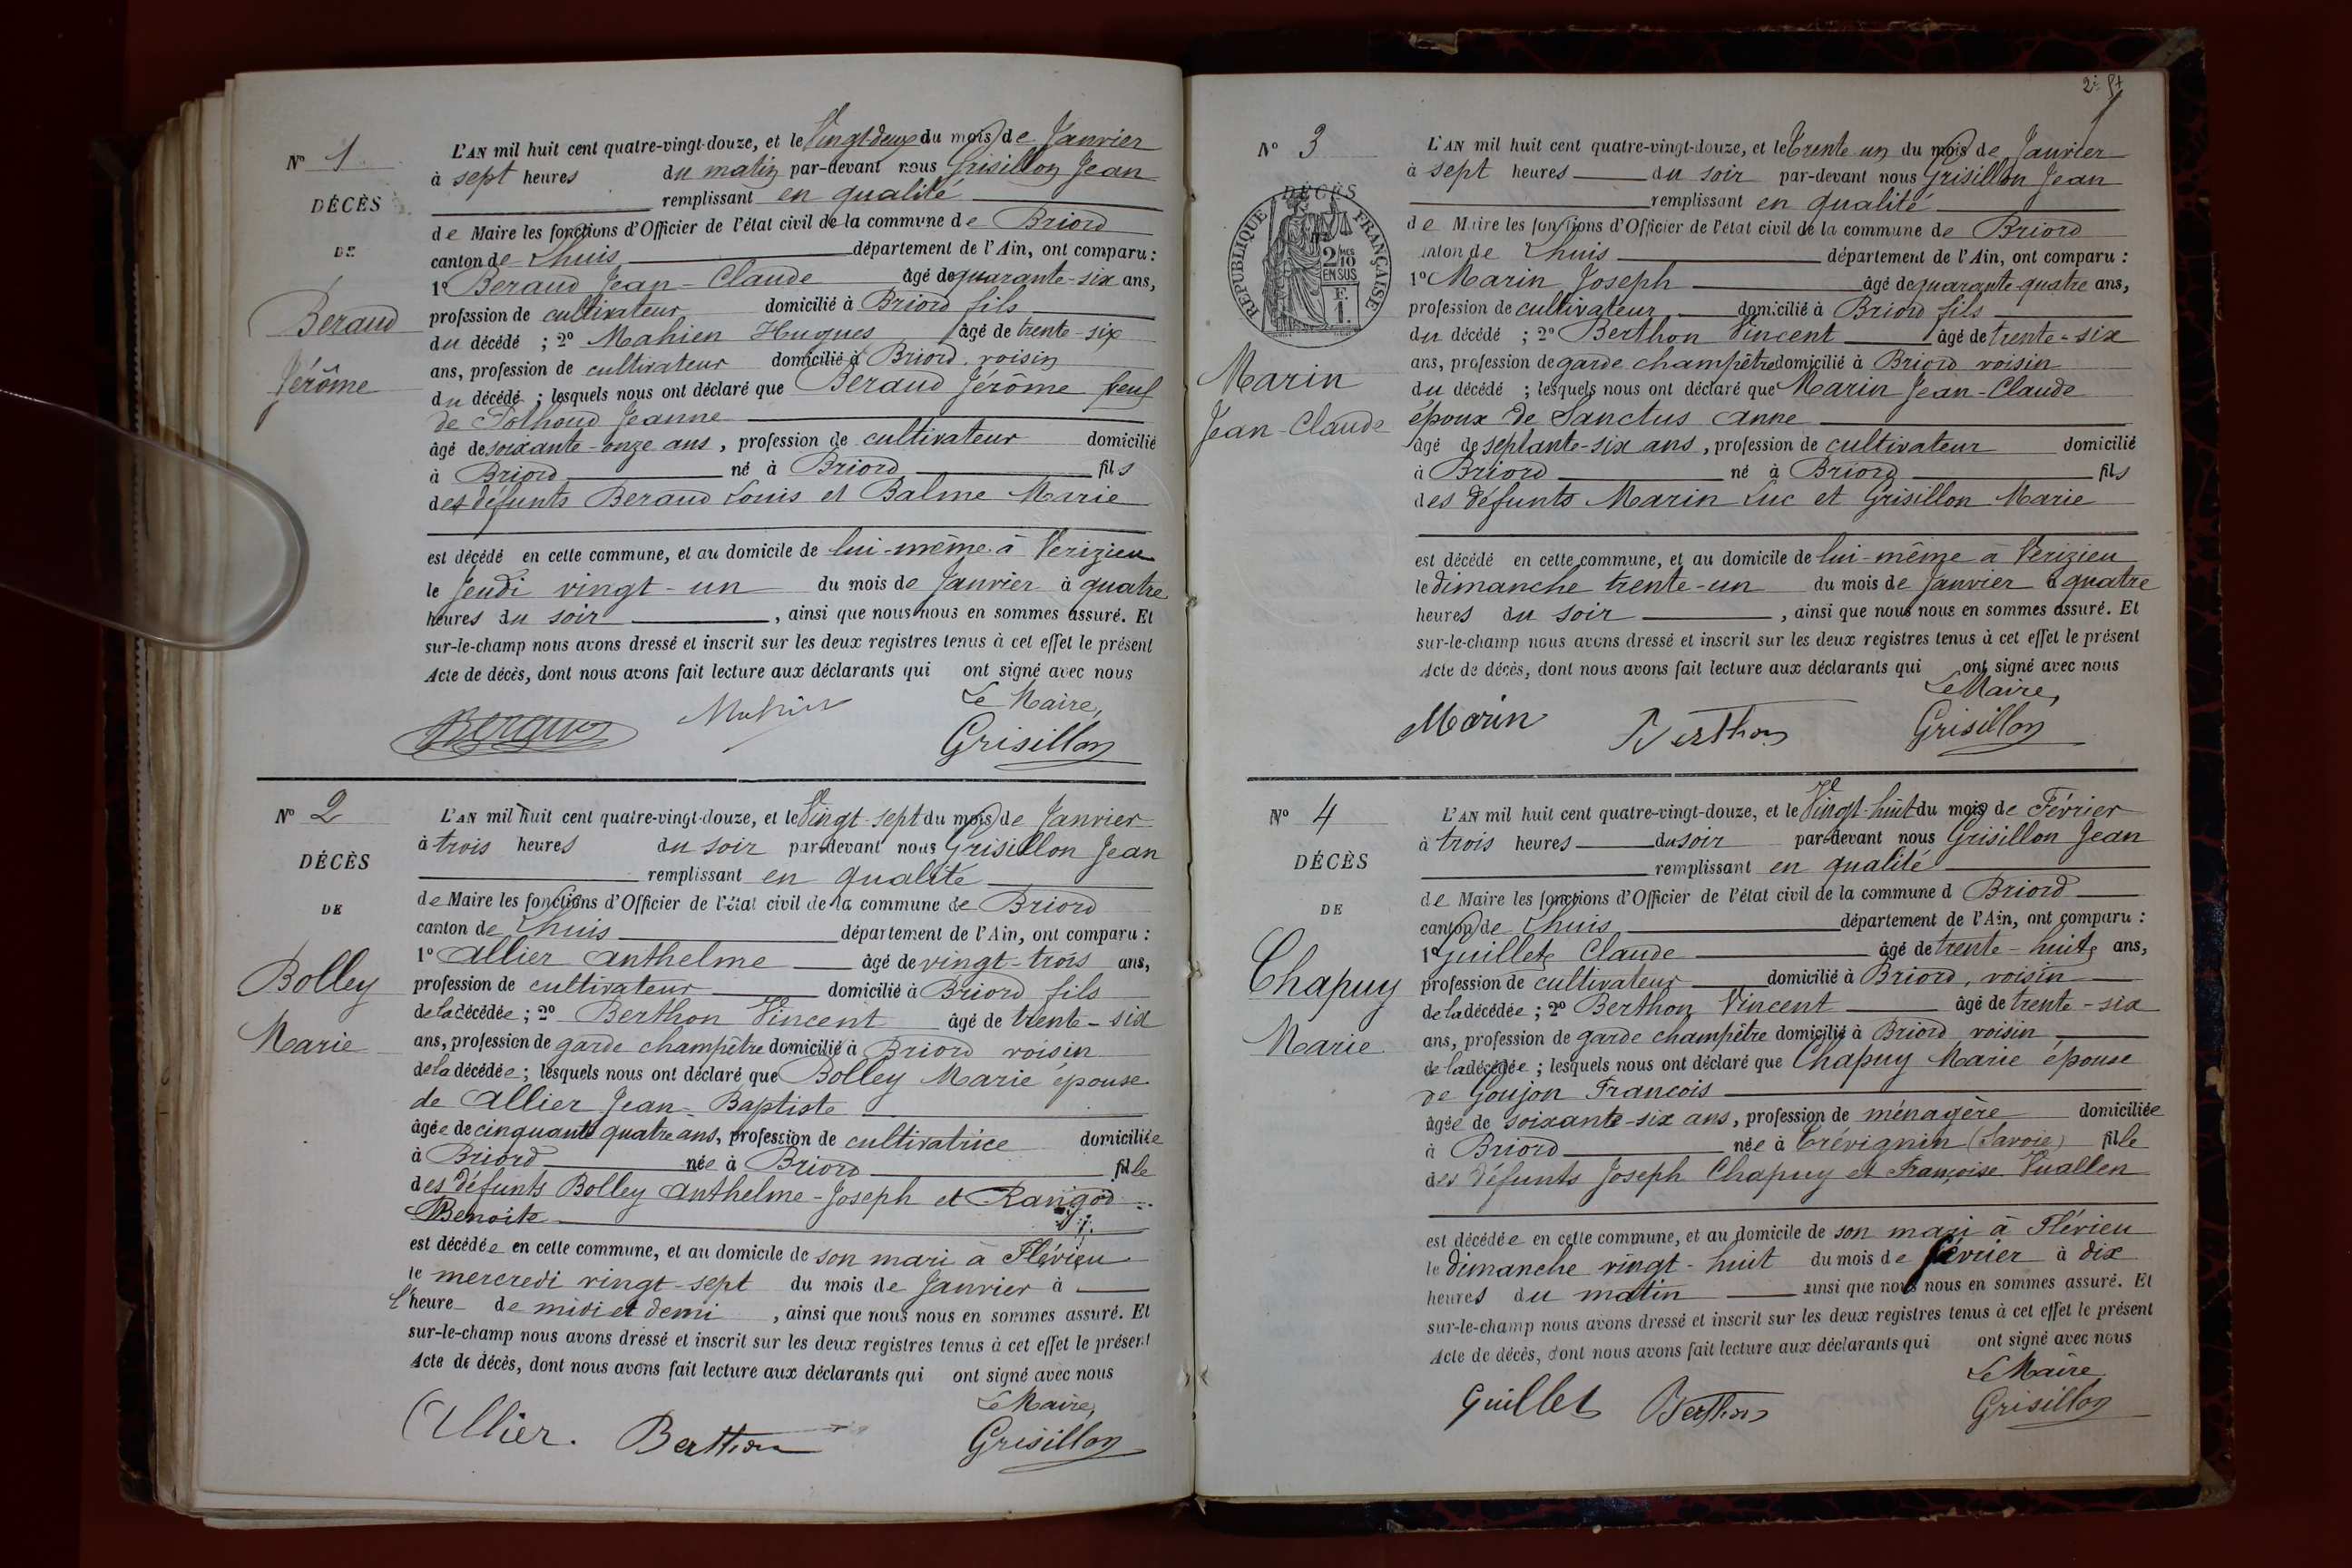 N° 1
DÉCÈS
DE
Beraud
Jérôme
L'AN mil huit cent quatre-vingt-douze, et le Vingt-deux du mois de Janvier
à sept heures du matin par-devant nous Grisillon Jean
remplissant en qualité
de Maire les fonctions d'Officier de l'état civil de la commune de Briord
canton de Lhuis département de l'Ain, ont comparu :
1° Beraud Jean-Claude âgé de quarante-six ans,
profession de cultivateur domicilié à Briord fils
du décédé ; 2° Mahien Hugues âgé de trente-six
ans, profession de cultivateur domicilié à Briord, voisin
du décédé ; lesquels nous ont déclaré que Beraud Jérôme veuf
de Jeanne
âgé de soixante-onze ans, profession de cultivateur domicilié
à Briord né à Briord fils
des défunts Beraud Louis et Balme Marie
est décédé en cette commune, et au domicile de lui-même à Verizieu
le Jeudi vingt-un du mois de Janvier à quatre
heures du soir , ainsi que nous nous en sommes assuré. Et
sur-le-champ nous avons dressé et inscrit sur les deux registres tenus à cet effet le présent
Acte de décès, dont nous avons fait lecture aux déclarants qui ont signé avec nous
Le Maire,
Beraud Grisillon
N° 2
DÉCÈS
DE
Bolley
Marie
L'AN mil huit cent quatre-vingt-douze, et le Vingt-sept du mois de Janvier
à trois heures du soir par-devant nous Grisillon Jean
remplissant en qualité
de Maire les fonctions d'Officier de l'état civil de la commune de Briord
canton de Lhuis département de l'Ain, ont comparu :
1° Allier Anthelme âgé de vingt-trois ans,
profession de cultivateur domicilié à Briord fils
de la décédée ; 2° Berthon Vincent âgé de trente-six
ans, profession de garde champêtre domicilié à Briord voisin
de la décédée ; lesquels nous ont déclaré que Bolley Marie épouse
de Allier Jean-Baptiste
âgée de cinquante quatre ans, profession de cultivatrice domiciliée
à Briord née à Briord fille
des défunts Bolley Anthelme-Joseph et Rangod
Benoite
est décédée en cette commune, et au domicile de son mari à Flévieu
le mercredi vingt-sept du mois de Janvier à
l'heure de midi et demi , ainsi que nous nous en sommes assuré. Et
sur-le-champ nous avons dressé et inscrit sur les deux registres tenus à cet effet le présent
Acte de décès, dont nous avons fait lecture aux déclarants qui ont signé avec nous
Le Maire,
Allier. Berthon Grisillon
N° 3
DÉCÈS
RÉPUBLIQUE FRANÇAISE
2 MES
10
EN SUS
F.
1.
Marin
Jean-Claude
L'AN mil huit cent quatre-vingt-douze, et le Trente un du mois de Janvier
à sept heures du soir par-devant nous Grisillon Jean
remplissant en qualité
de Maire les fonctions d'Officier de l'état civil de la commune de Briord
canton de Lhuis département de l'Ain, ont comparu :
1° Marin Joseph âgé de quarante-quatre ans,
profession de cultivateur domicilié à Briord fils
du décédé ; 2° Berthon Vincent âgé de trente-six
ans, profession de garde champêtre domicilié à Briord voisin
du décédé ; lesquels nous ont déclaré que Marin Jean-Claude
époux de Sanctus Anne
âgé de septante-six ans, profession de cultivateur domicilié
à Briord né à Briord fils
des défunts Marin Luc et Grisillon Marie
est décédé en cette commune, et au domicile de lui-même à Verizieu
le dimanche trente-un du mois de Janvier à quatre
heures du soir , ainsi que nous nous en sommes assuré. Et
sur-le-champ nous avons dressé et inscrit sur les deux registres tenus à cet effet le présent
Acte de décès, dont nous avons fait lecture aux déclarants qui ont signé avec nous
Le Maire,
Marin Berthon Grisillon
N° 4
DÉCÈS
DE
Chapuy
Marie
L'AN mil huit cent quatre-vingt-douze, et le Vingt-huit du mois de Février
à trois heures du soir par-devant nous Grisillon Jean
remplissant en qualité
de Maire les fonctions d'Officier de l'état civil de la commune d Briord
canton de Lhuis département de l'Ain, ont comparu :
1° Guillet Claude âgé de trente-huit ans,
profession de cultivateur domicilié à Briord, voisin
de la décédée ; 2° Berthon Vincent âgé de trente-six
ans, profession de garde champêtre domicilié à Briord voisin
de la décédée ; lesquels nous ont déclaré que Chapuy Marie épouse
de Goujon Francois
âgée de soixante-six ans, profession de ménagère domiciliée
à Briord née à Trévignin (Savoie) fille
des défunts Joseph Chapuy et Françoise Vuallen
est décédée en cette commune, et au domicile de son mari à Flévieu
le dimanche vingt-huit du mois de février à dix
heures du matin ainsi que nous nous en sommes assuré. Et
sur-le-champ nous avons dressé et inscrit sur les deux registres tenus à cet effet le présent
Acte de décès, dont nous avons fait lecture aux déclarants qui ont signé avec nous
Le Maire
Guillet Berthon Grisillon